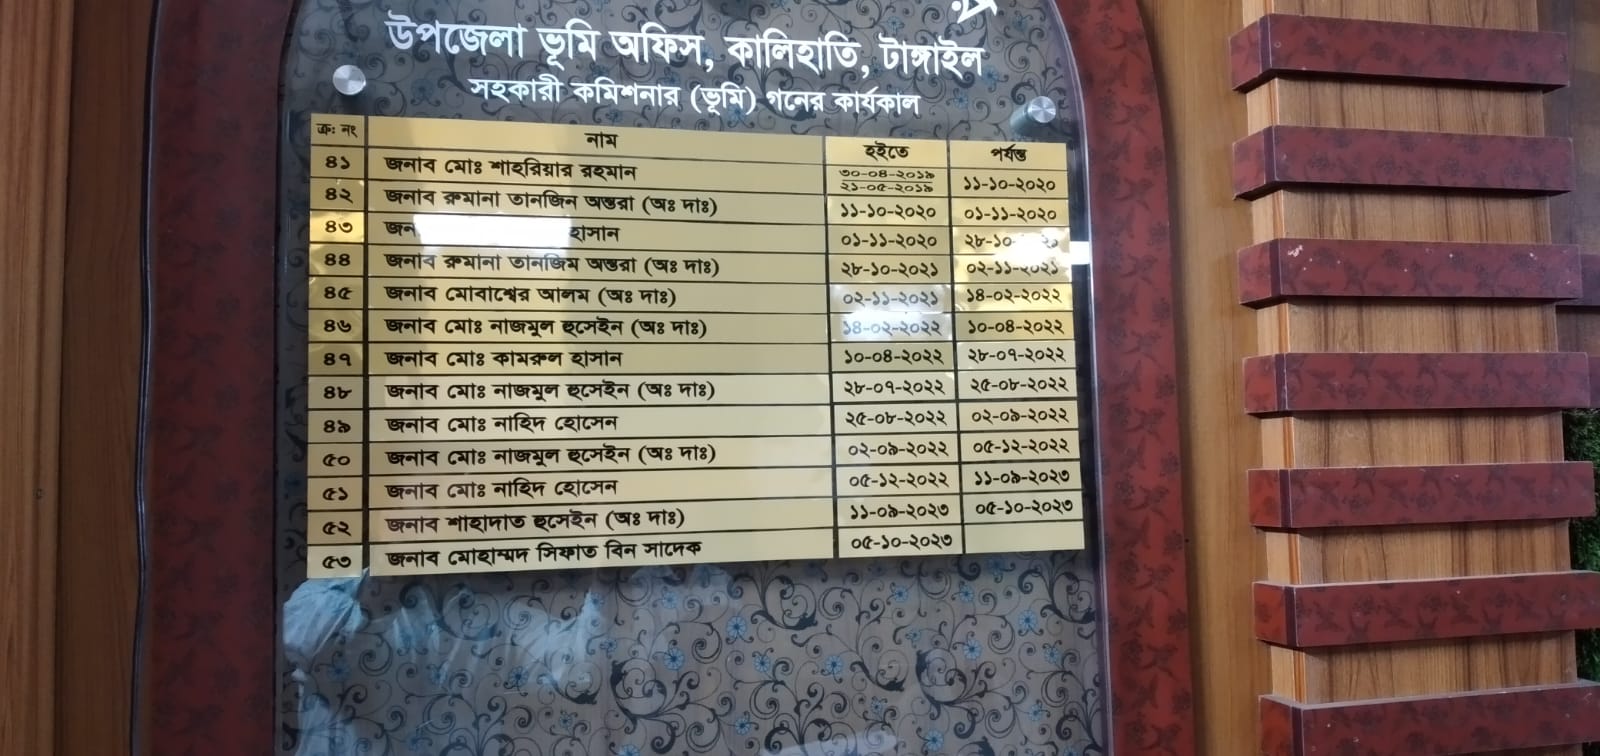 উপজেলা ভূমি অফিস, কালিহাতি, টাঙ্গাইল
সহকারী কমিশনার (ভূমি) গনের কার্যকাল
ক্র: নং নাম হইতে পর্যন্ত
৪১ জনাব মোঃ শাহরিয়ার রহমান ৩০-০৪-২০১৯ ২১-০৫-২০১৯ ১১-১০-২০২০
৪২ জনাব রুমানা তানজিন অন্তরা (অঃ দাঃ) ১১-১০-২০২০ ০১-১১-২০২০
৪৩ হাসান ০১-১১-২০২০
৪৪ জনাব রুমানা তানজিম অন্তরা (অঃ দাঃ) ২৮-১০-২০২১ ০২-১১-২০২১
৪৫ জনাব মোবাশ্বের আলম (অঃ দাঃ) ০২-১১-২০২১ ১৪-০২-২০২২
৪৬ জনাব মোঃ নাজমুল হুসেইন (অঃ দাঃ) ১৪-০২-২০২২ ১০-০৪-২০২২
৪৭ জনাব মোঃ কামরুল হাসান ১০-০৪-২০২২ ২৮-০৭-২০২২
৪৮ জনাব মোঃ নাজমুল হুসেইন (অঃ দাঃ) ২৮-০৭-২০২২ ২৫-০৮-২০২২
৪৯ জনাব মোঃ নাহিদ হোসেন ২৫-০৮-২০২২ ০২-০৯-২০২২
৫০ জনাব মোঃ নাজমুল হুসেইন (অঃ দাঃ) ০২-০৯-২০২২ ০৫-১২-২০২২
৫১ জনাব মোঃ নাহিদ হোসেন ০৫-১২-২০২২ ১১-০৯-২০২৩
৫২ জনাব শাহাদাত হুসেইন (অঃ দাঃ) ১১-০৯-২০২৩ ০৫-১০-২০২৩
৫৩ জনাব মোহাম্মদ সিফাত বিন সাদেক ০৫-১০-২০২৩